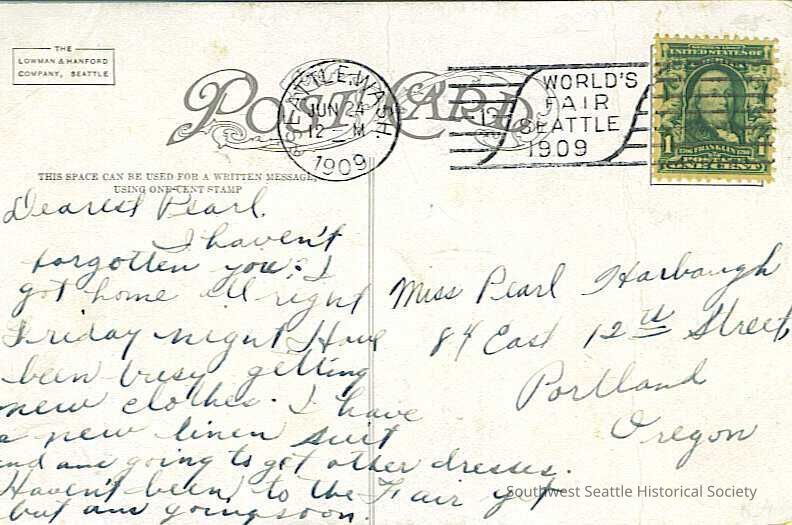 THE
LOWMAN & HANFORD
COMPANY, SEATTLE
POST CARD
SEATTLE, WASH.
JUN 24
12 - M.
1909
WORLD'S
FAIR
SEATTLE
1909
UNITED STATES OF
1 FRANKLIN 1
ONE CENT
THIS SPACE CAN BE USED FOR A WRITTEN MESSAGE,
USING ONE CENT STAMP
Dearest Pearl.
I haven't
forgotten you. I
got home all right
Friday night Have
been busy getting
new clothes. I have
a new linen suit
and am going to get other dresses.
Haven't been to the Fair yet
but am going soon.
Miss Pearl Harbaugh
84 East 12th Street
Portland
Oregon
Southwest Seattle Historical Society